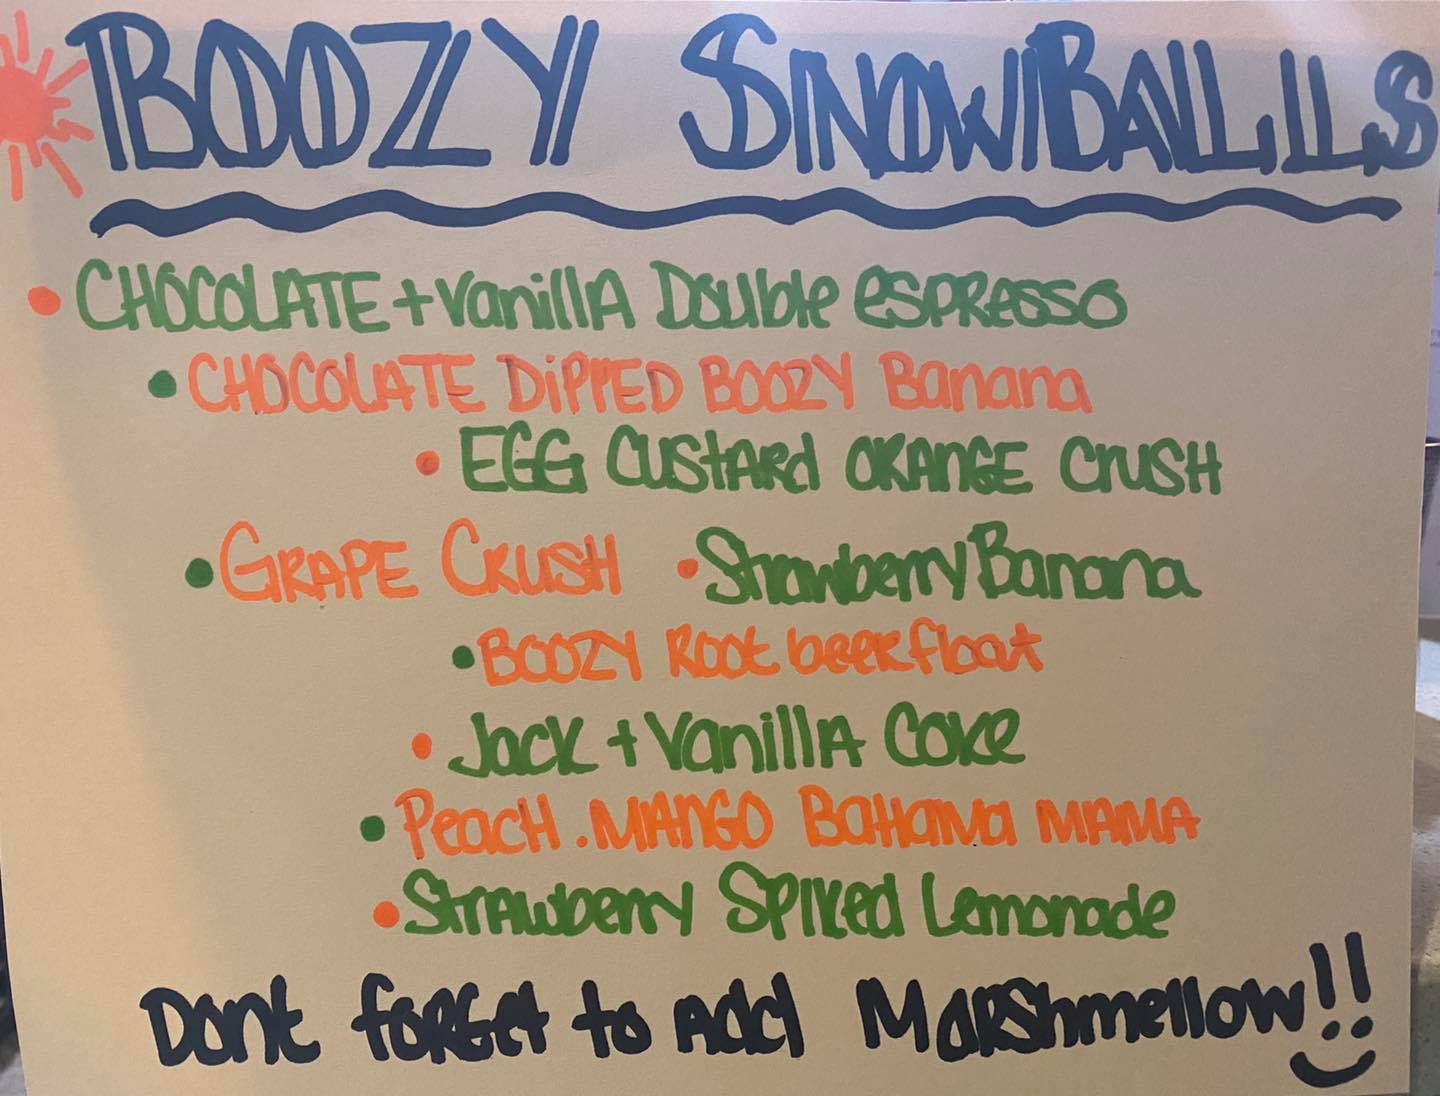 BOOZY SNOWBALLS
• CHOCOLATE + Vanilla Double espresso
• CHOCOLATE DIPPED BOOZY Banana
• EGG CUSTARD ORANGE CRUSH
• GRAPE CRUSH • Strawberry Banana
• BOOZY Root beer float
• Jack + Vanilla Coke
• Peach . MANGO BaHama MAMA
• Strawberry Spiked Lemonade
Dont forget to Add Marshmellow!!